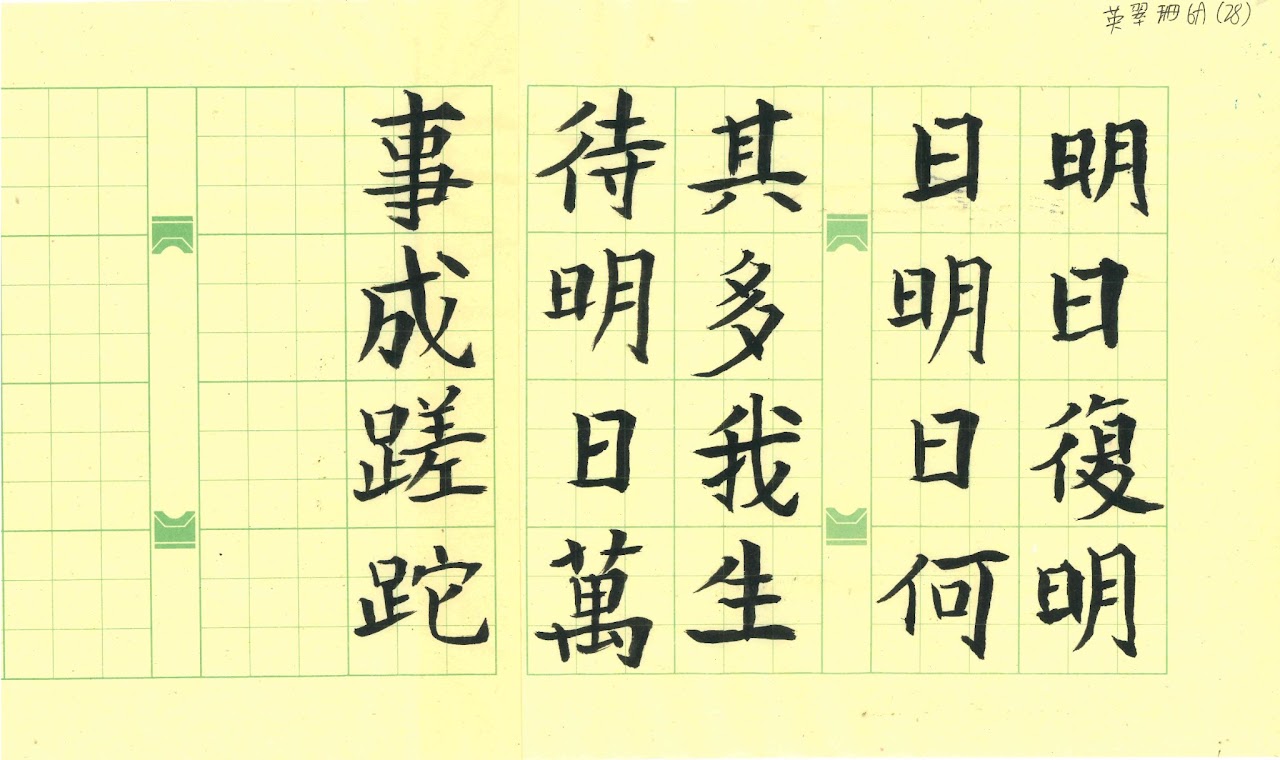 英翠珊 6A (28)
明日復明
日明日何
其多我生
待明日萬
事成蹉跎